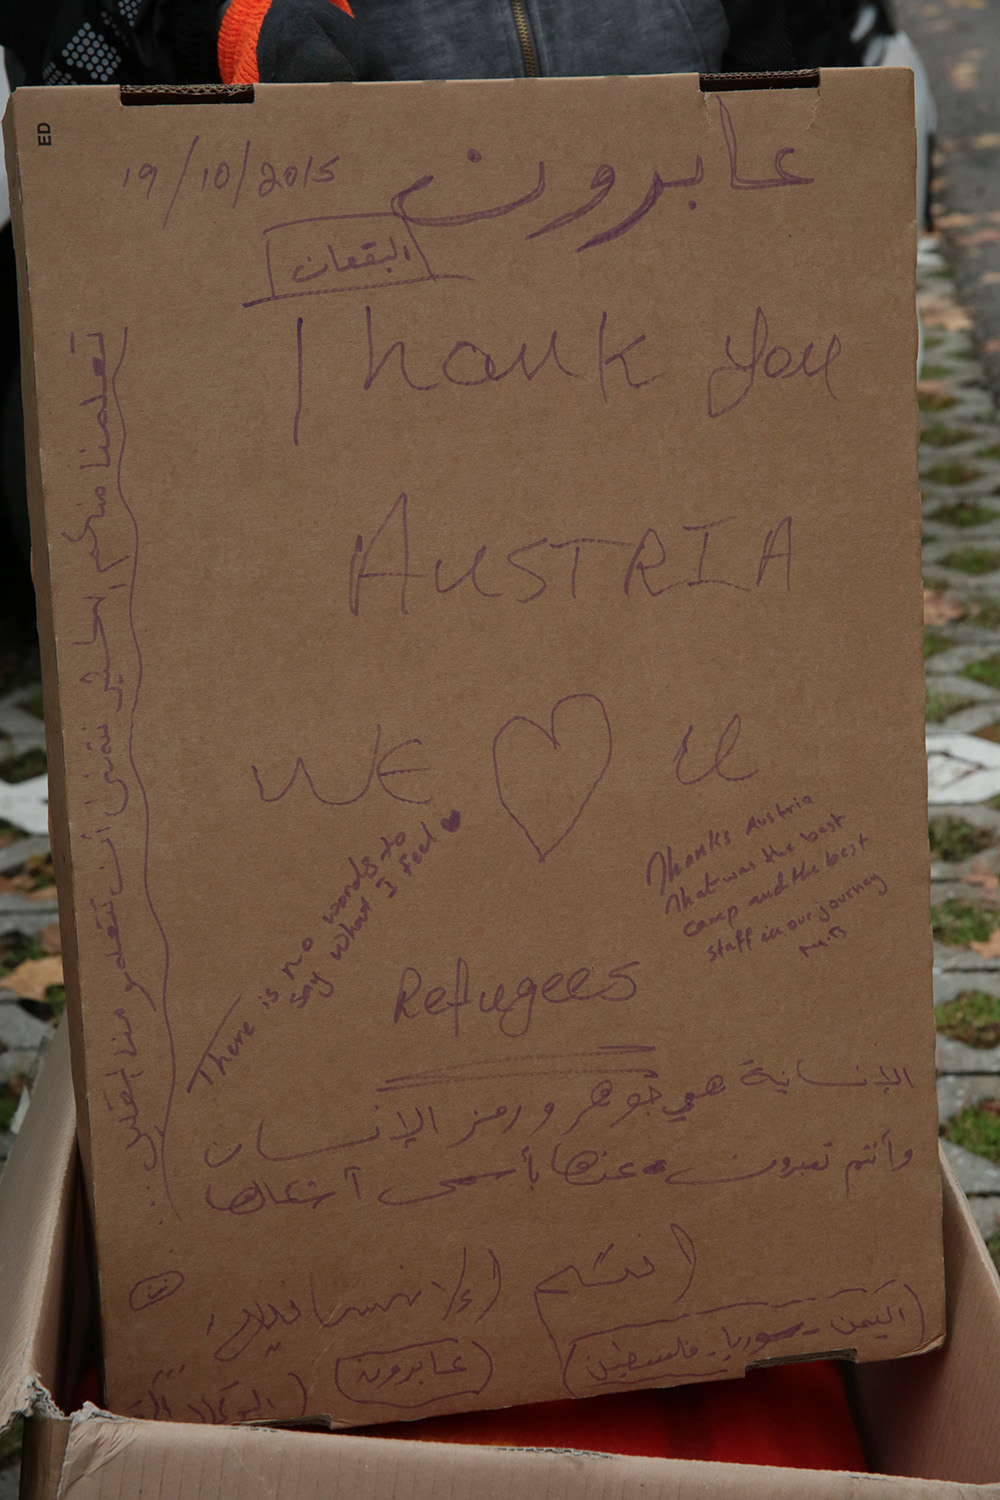 ED
19/10/2015
عابرون
البقعان
Thank you
AUSTRIA
WE ♡ U
There is no words to
say what I feel ♥
Thanks Austria
that was the best
camp and the best
staff in our journey
M.B
Refugees
تعلمنا منكم الكثير نتمنى أن تتعلمو منا القليل
الإنسانية هي جوهر ورمز الإنسان
وأنتم تعبرون عنها بأسمى أشكالها
انتم الإنسانية
(اليمن - سوريا - فلسطين)
(عابرون)